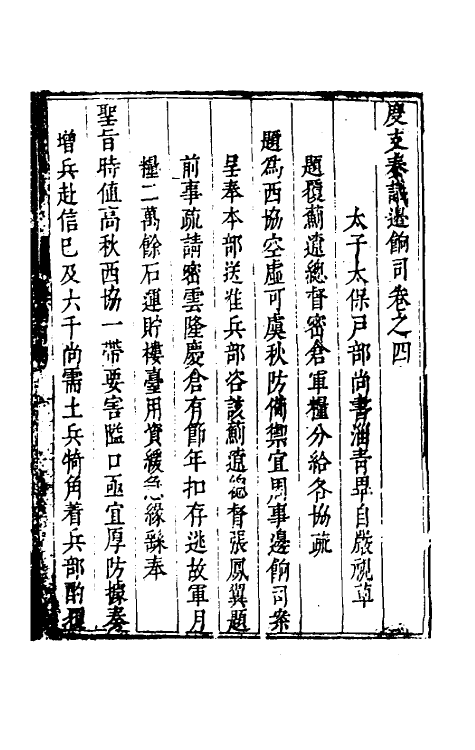 度支奏議邊餉司卷之四
太子太保戸部尚書淄青畢自嚴視草
題覆薊遼總督密倉軍糧分給各協疏
題爲西協空虛可虞秋防備禦宜周事邊餉司案
呈奉本部送准兵部咨該薊遼總督張鳳翼題
前事疏請密雲隆慶倉有節年扣存逃故軍月
糧二萬餘石運貯樓臺用資緩急緣繇奉
聖旨時值高秋西協一帶要害隘口亟宜厚防據奏
增兵赴信巳及六千尚需土兵犄角着兵部酌